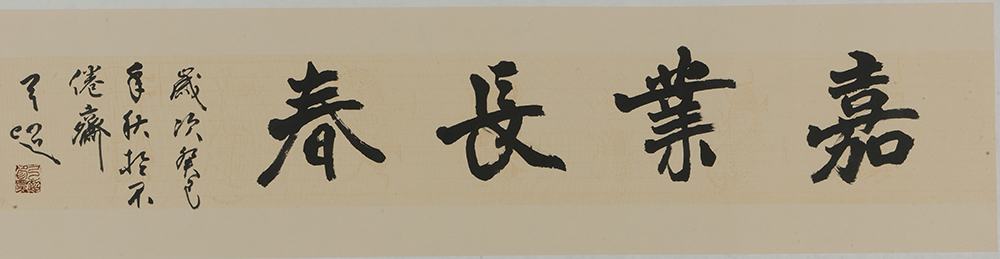 嘉業長春
歲次癸巳
年秋於不
倦齋